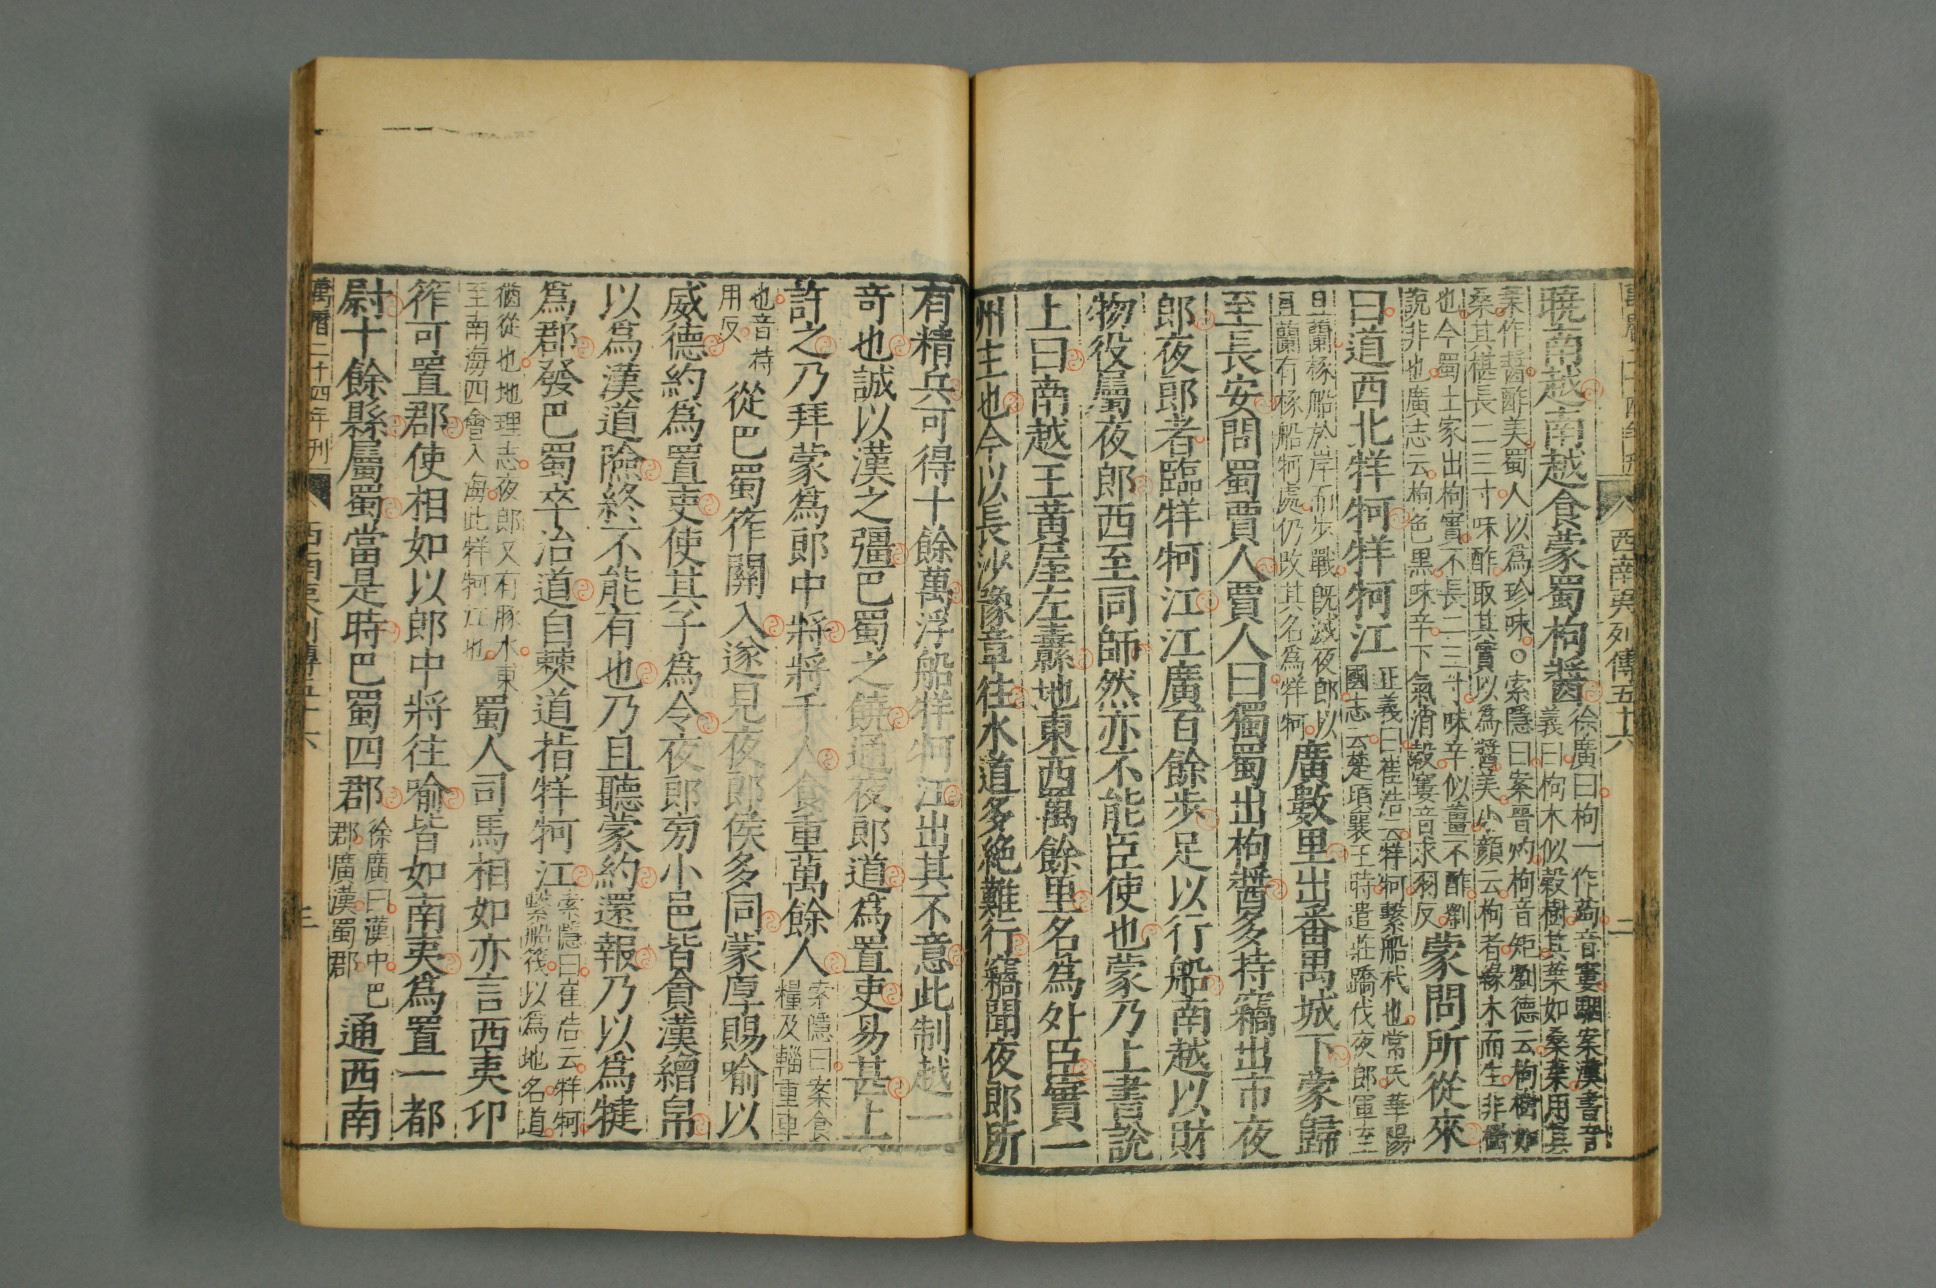 西南夷列傳五十六 二
曉南越南越食蒙蜀枸醬徐廣曰枸一作蒟音窶駰案漢書音
義曰枸木似榖樹其葉如桑葉用其
葉作醬酢美蜀人以爲珍味○索隱曰案晉灼枸音矩劉德云枸樹如
桑其椹長二三寸味酢取其實以爲醬美小顏云枸者緣木而生非樹
也今蜀土家出枸實不長二三寸味辛似薑不酢劉
說非也廣志云枸色黑味辛下氣消穀窶音求羽反蒙問所從來
曰道西北牂牁牂牁江正義曰崔浩云牂牁繫船杙也常氏華陽
國志云楚頃襄王時遣莊蹻伐夜郎軍至
且蘭椓船於岸而步戰既滅夜郎以
且蘭有椓船牁處仍改其名爲牂牁廣數里出番禺城下蒙歸
至長安問蜀賈人賈人曰獨蜀出枸醬多持竊出市夜
郎夜郎者臨牂牁江江廣百餘步足以行船南越以財
物役屬夜郎西至同師然亦不能臣使也蒙乃上書說
上曰南越王黃屋左纛地東西萬餘里名爲外臣實一
州主也今以長沙豫章往水道多絶難行竊聞夜郎所
有精兵可得十餘萬浮船牂牁江出其不意此制越一
竒也誠以漢之彊巴蜀之饒通夜郎道爲置吏易甚上
許之乃拜蒙爲郎中將將千人食重萬餘人索隱曰案食
糧及輜重車
也音持
用反從巴蜀筰關入遂見夜郎侯多同蒙厚賜喻以
威德約爲置吏使其子爲令夜郎旁小邑皆貪漢繒帛
以爲漢道險終不能有也乃且聽蒙約還報乃以爲犍
爲郡發巴蜀卒治道自僰道指牂牁江索隱曰崔浩云牂牁
繫船筏以爲地名道
猶從也地理志夜郎又有豚水東
至南海四會入海此牂牁江也蜀人司馬相如亦言西夷卭
筰可置郡使相如以郎中將往喻皆如南夷爲置一都
尉十餘縣屬蜀當是時巴蜀四郡徐廣曰漢中巴
郡廣漢蜀郡通西南
萬曆二十四年刊 西南夷列傳五十六 三